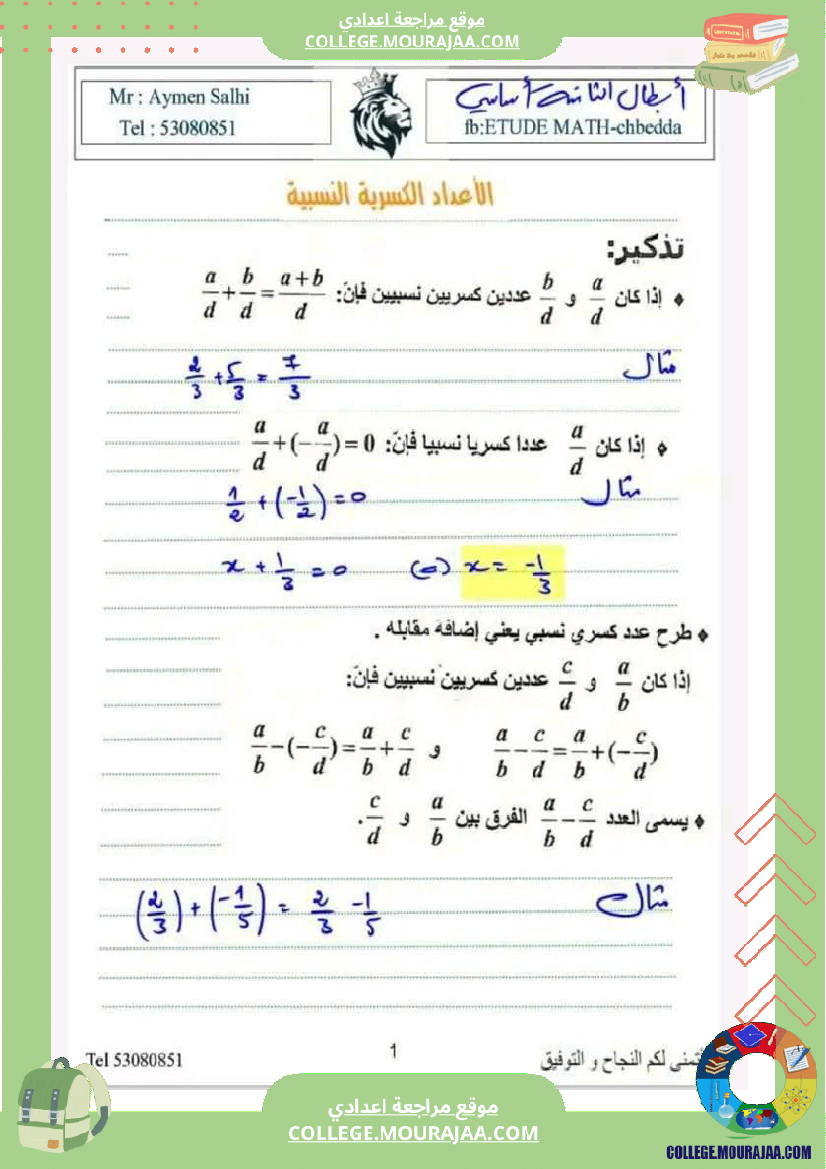 موقع مراجعة اعدادي
COLLEGE.MOURAJAA.COM
Mr : Aymen Salhi
Tel : 53080851
أبطال الثامنة أساسي
fb:ETUDE MATH-chbedda
الأعداد الكسرية النسبية
تذكير:
إذا كان a/d و b/d عددين كسريين نسبيين فإنّ: a/d + b/d = (a+b)/d
مثال
2/3 + 5/3 = 7/3
إذا كان a/d عددا كسريا نسبيا فإنّ: a/d + (-a/d) = 0
مثال
1/2 + (-1/2) = 0
x + 1/3 = 0 (=) x = -1/3
طرح عدد كسري نسبي يعني إضافة مقابله .
إذا كان a/b و c/d عددين كسريين نسبيين فإنّ:
a/b - c/d = a/b + (-c/d) و a/b - (-c/d) = a/b + c/d
يسمى العدد a/b - c/d الفرق بين a/b و c/d.
مثال
(2/3) + (-1/5) = 2/3 -1/5
Tel 53080851
1
تمنى لكم النجاح و التوفيق
موقع مراجعة اعدادي
COLLEGE.MOURAJAA.COM
COLLEGE.MOURAJAA.COM